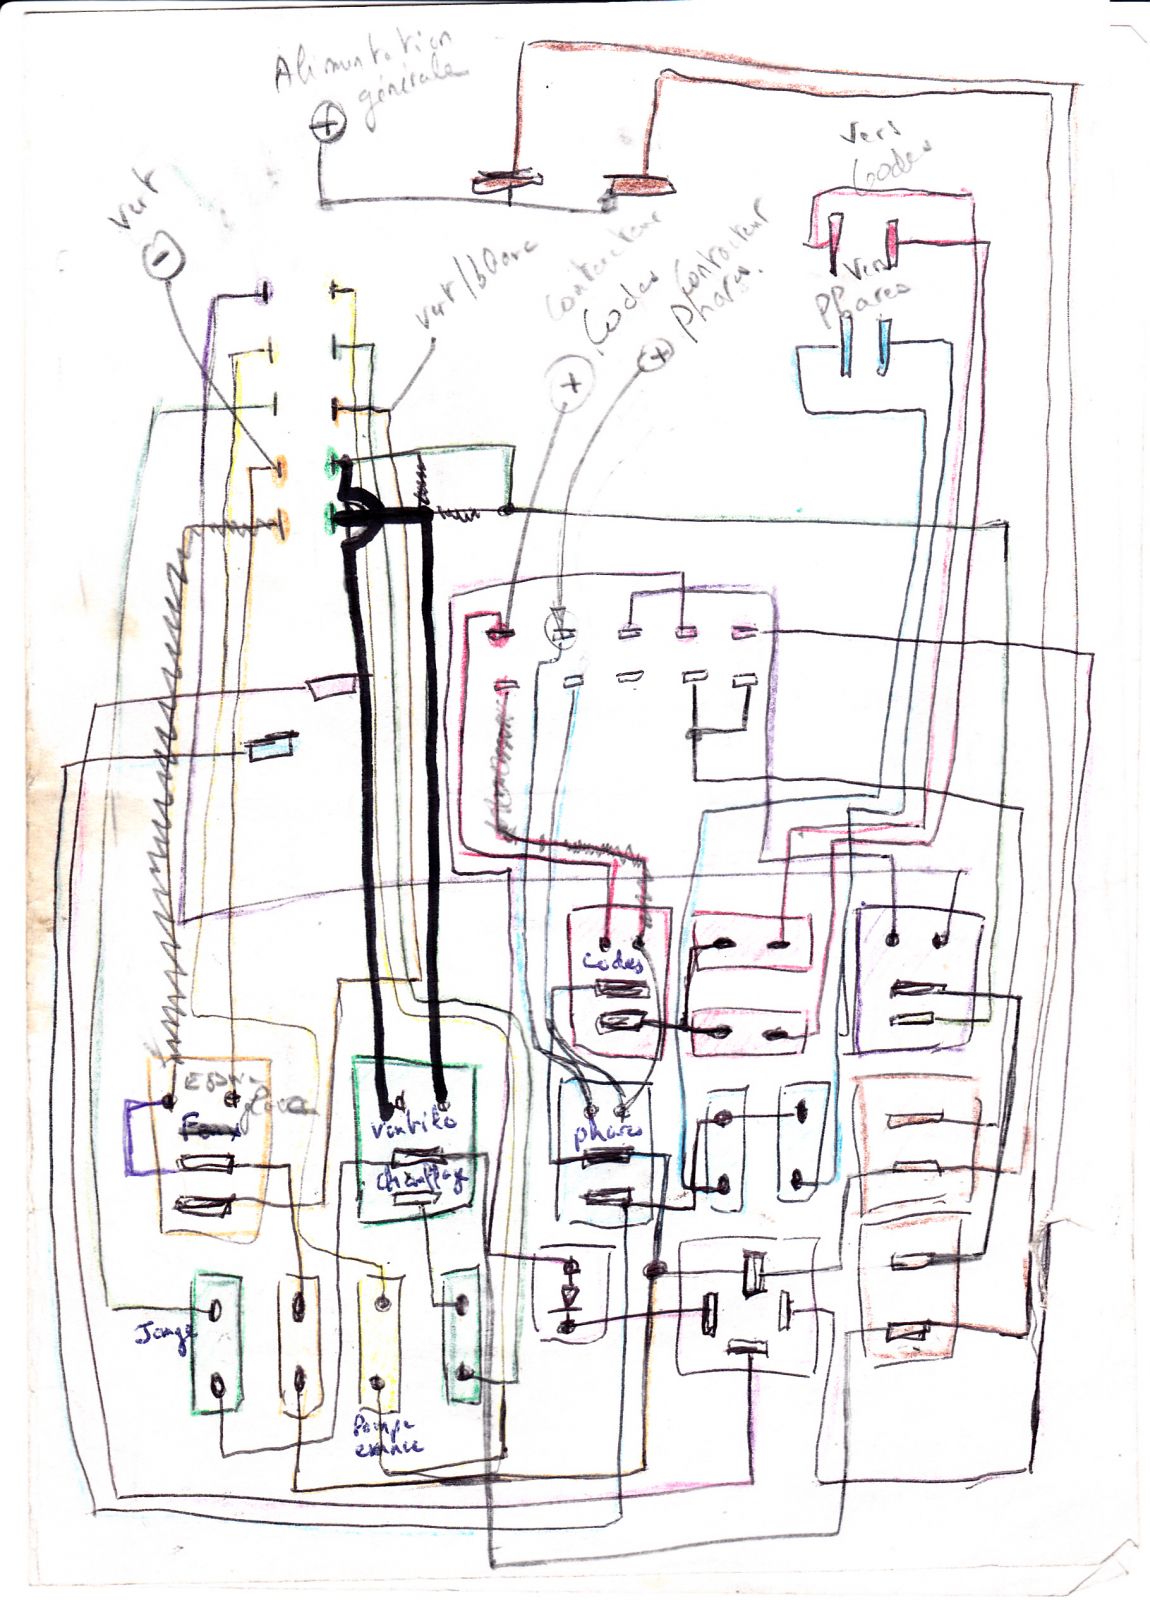 Alimentation
générale
+
Vers
Codes
vert
-
vert/blanc
Contacteur
Codes
+
Contacteur
Phares.
+
Vers
Phares
Codes
Essu
glace
Ventilo
chauffage
phares
Jauge
Pompe
essence